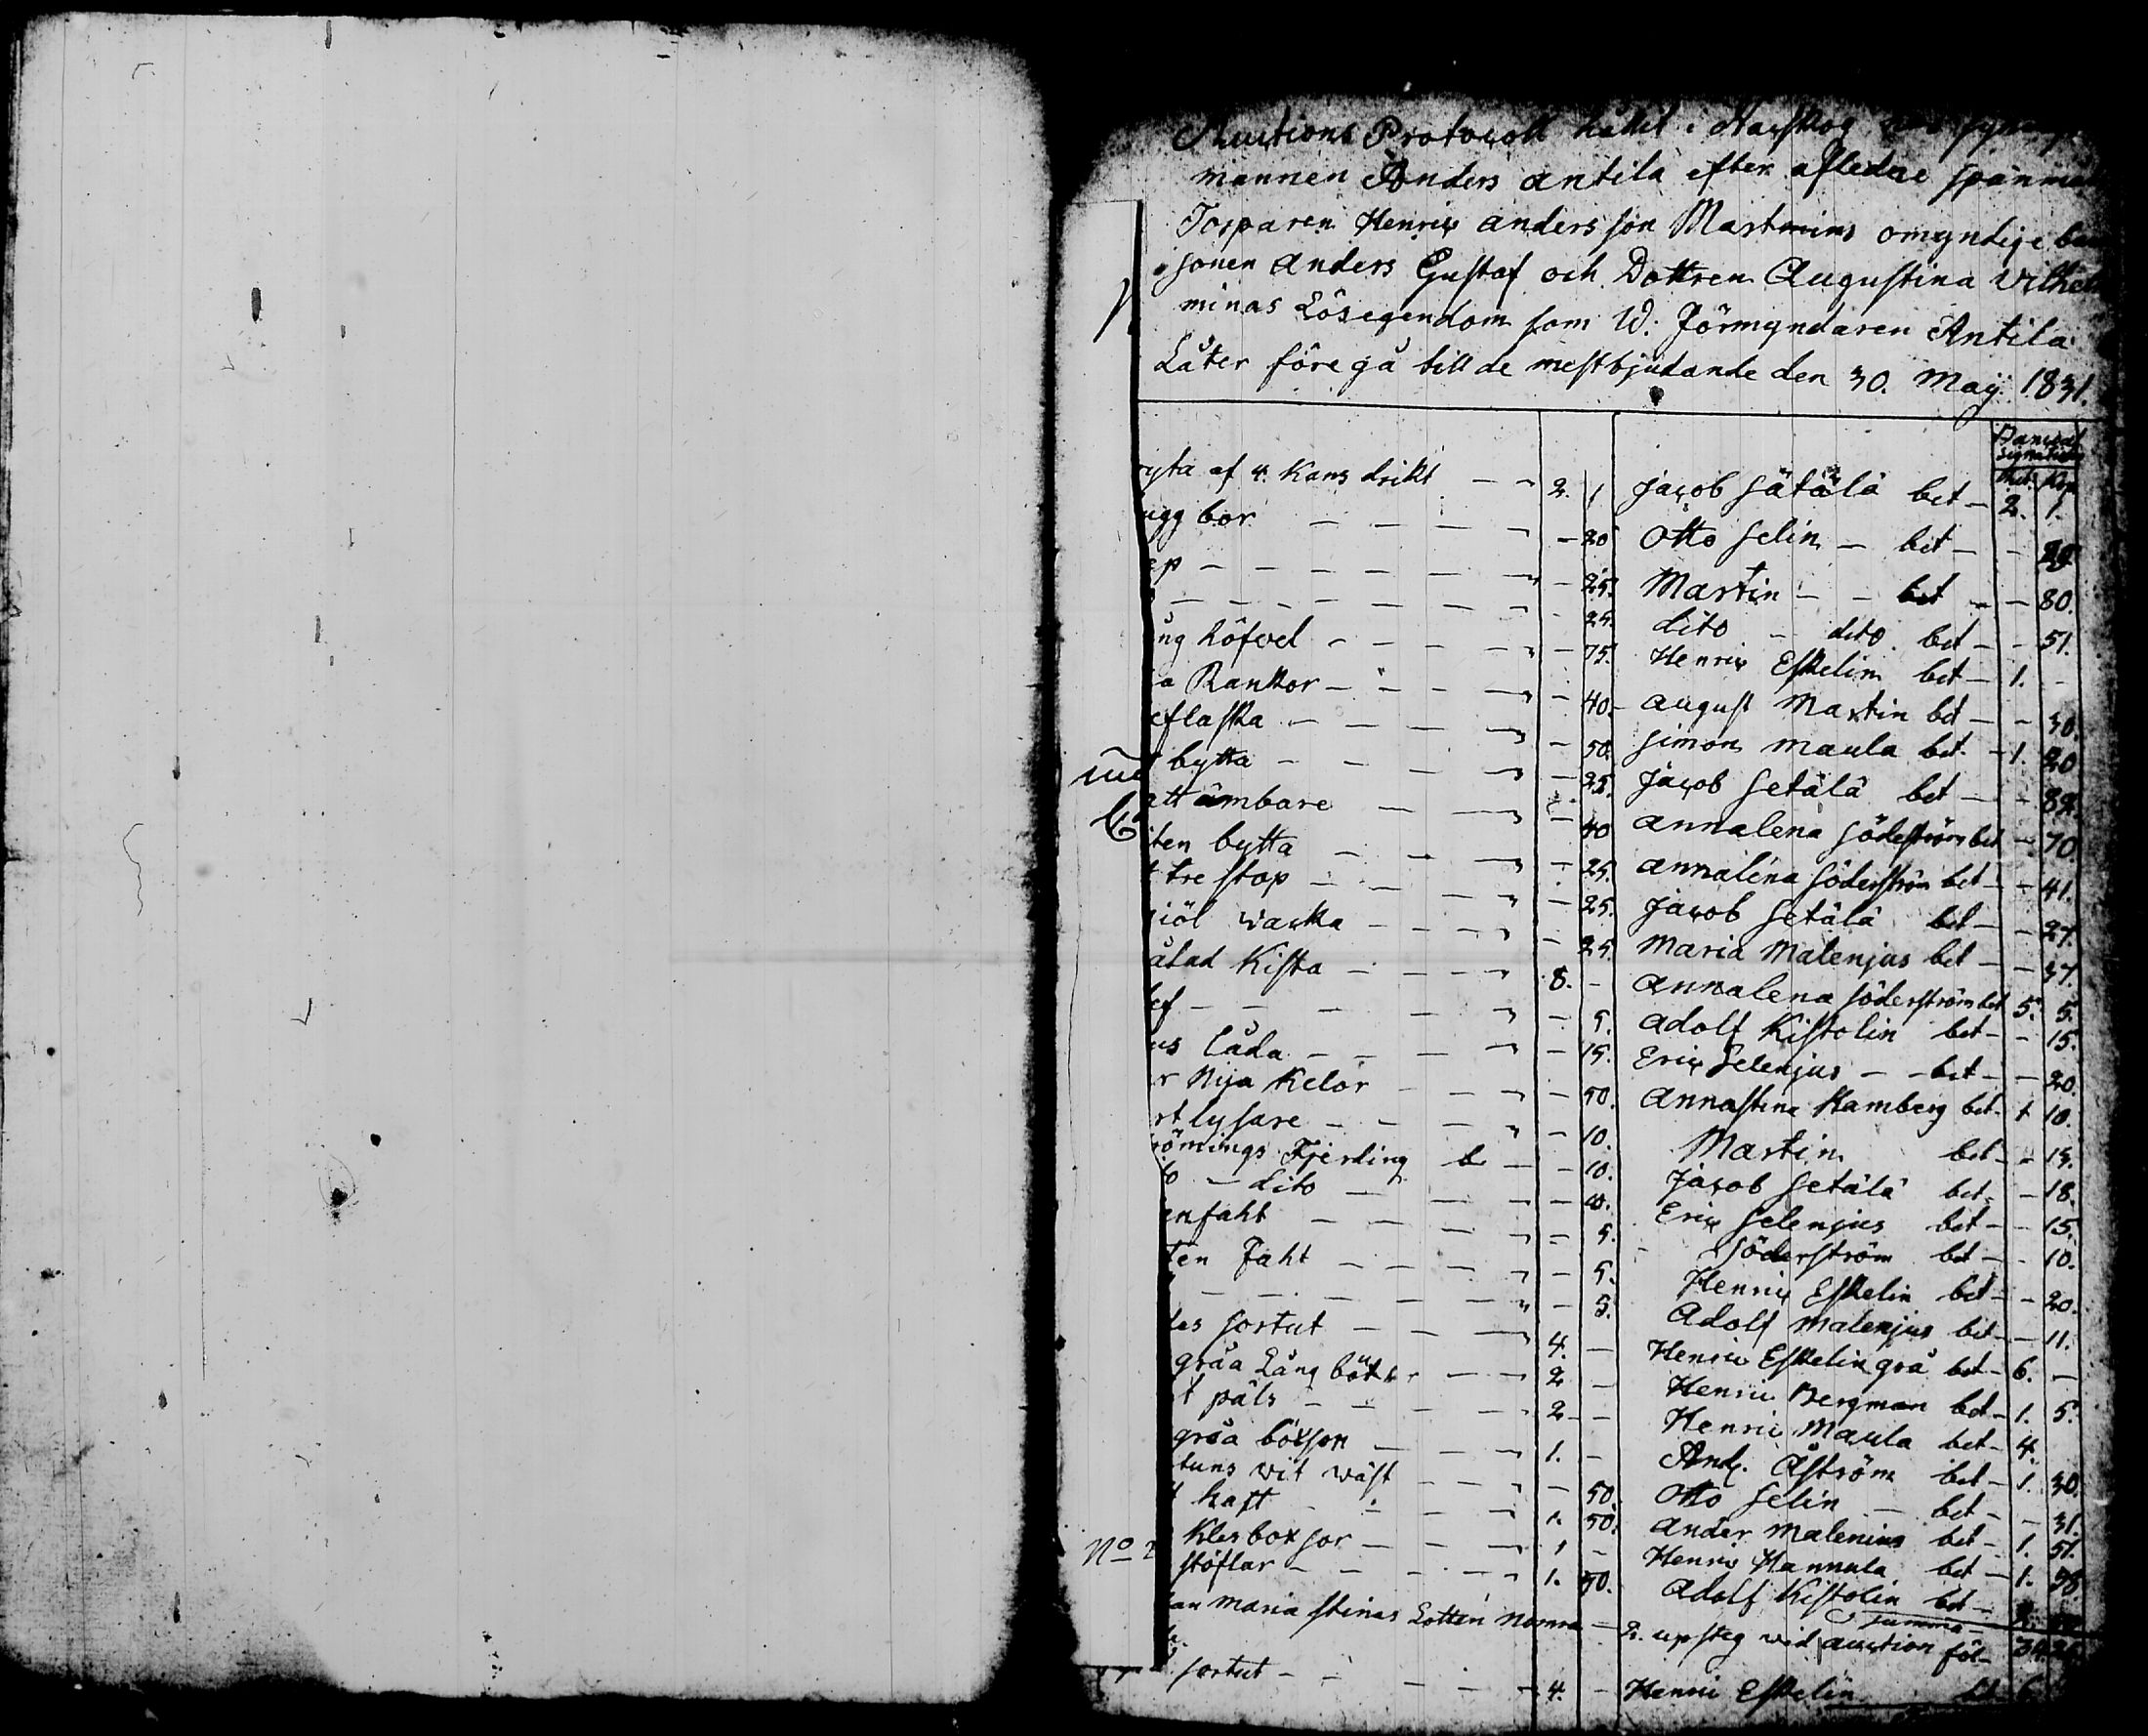 Auctions Protocoll hållit i
mannen Anders antila efter afledne
Torparen Henric anders son Martinins omyndige
sonen Anders Gustaf och Dottren Augustina Vilhel
minas Lösegendom som W: Förmyndaren Antila
Låter före gå till de mestbjudande den 30. Maij 1831.
Rub: Kop
ytta af 4. Kans drikt - - 2. 1 Jacob Sätälä bet - 2. 1.
ugg bor - - - - 20 Otto Selin - bet - -
ep - - - - - 25. Martin - - bet - - 80.
- - - - - 25. dito - dito bet - - 51.
ång höfvel - - - - 75. Henric Eskelin bet - 1. -
a Rankor - - - - 40 - august Martin bet - - 30.
eflaska - - - - 50. Simon maula bet - 1. 20
bytta - - - - 25. Jacob Setälä bet - -
ett ämbare - - - 40 annalena Söderström bet - 70
iten bytta - - - - 25. annalena Söderström bet - - 41.
t tre stop - - - - 25. Jacob Setälä bet - - 27.
iöl wacka - - - - 25. Maria Malenjus bet - - 37.
ålad Kista - - - - 8. - Annalena Söderström bet 5. 5.
ef - - - - - 5. Adolf Kistolin bet - - 15.
us Låda - - - - 15. Eric Selenjus - - bet - - 20.
r Nija Kelor - - - 50. Annastina Hamberg bet - 1 10.
rt lysare - - - - 10. Martin bet - -
römings Fjerding - - 10. Jacob Setälä bet - - 18.
to - dito - - - 10. Eric Selenjus bet - - 15.
enfaht - - - - 5. Söderström bet - - 10.
ten Faht - - - - 5. Henric Eskelin bet - - 20.
- - - - - 5. Adolf Malenjus bet - - 11.
des sortut - - - 4. - Henric Eskelin grå bet - 6. -
gråa Lång - - 2 - Henric Bergman bet - 1. 5.
t päls - - - - 2 - Henric Maula bet - 4.
gråa böxsor - - - 1. - And. Åström bet - 1. 30.
tuns vit wäst - - - 50. Otto Selin - bet - - 31.
haft - - - - 1. 50. Ander Malenius bet - 1. 51.
No Kles boxsor - - - 1 - Henric Hannula bet - 1. 38
stöflar - - - - 1. 50. Adolf Kistolin bet -
Summa
an maria stinas Lotten - 2. upsteg vid auction föl-
sortut - - - - 4. - Henric Eskelin